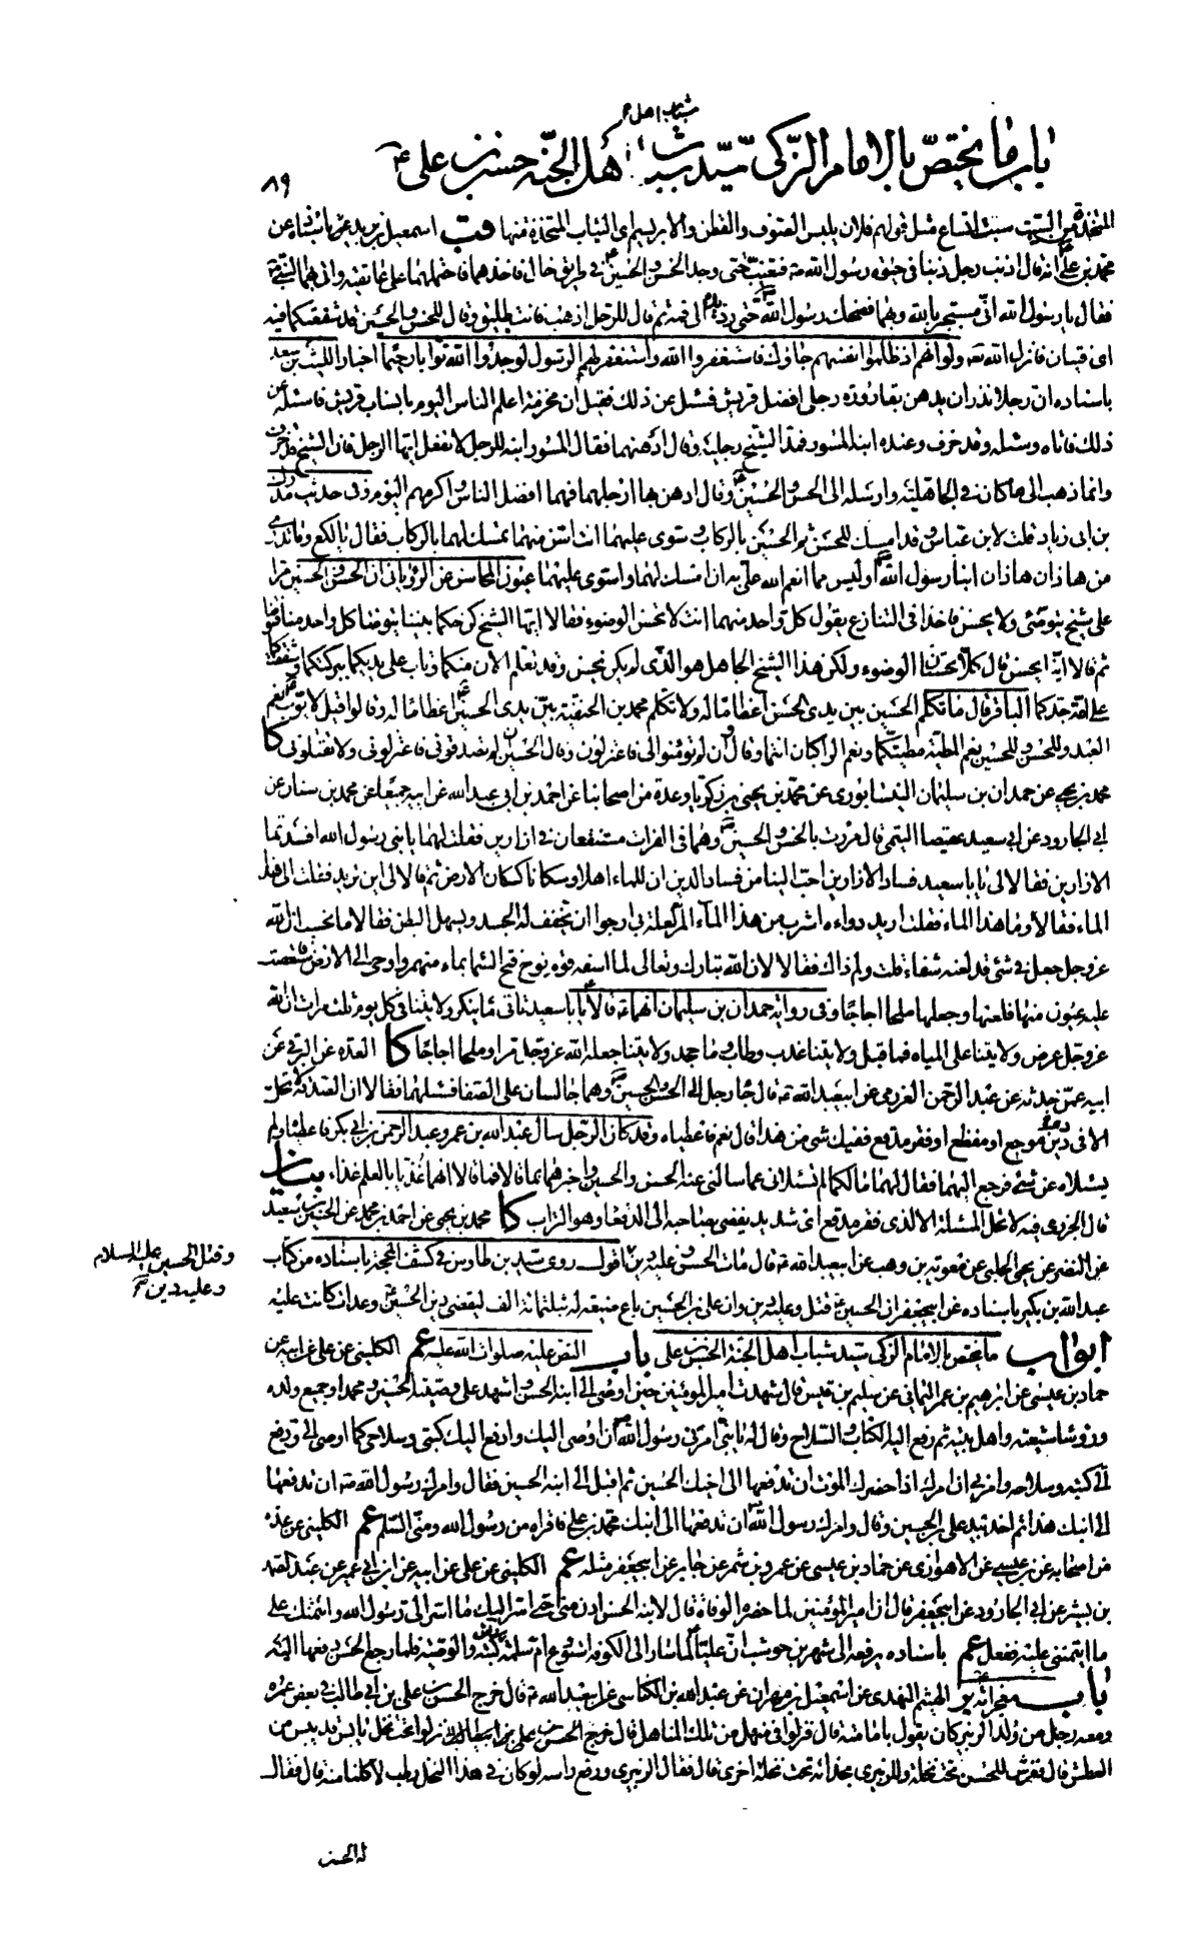 شباب اهل
باب ما يختص بالامام الزكى سيد شباب اهل الجنة حسن بن على ع
٨٩
المتخذة من البيت سبت اتساع مثل قولهم فلان يلبس الصوف والقطن والابريسم اى الثياب المتخذة منها قب اسمعيل بن يزيد باسناده عن
محمد بن على انه قال اذنب رجل ذنبا فى حيوة رسول الله ص فتغيب حتى وجد الحسن والحسين فى طريق خال فاخذهما فاحتملهما على عاتقيه واتى بهما النبى
فقال يا رسول الله انى مستجير بالله وبهما فضحك رسول الله حتى رد يده الى فمه ثم قال للرجل اذهب فانت طليق وقال للحسن والحسين قد شفعتكما فيه
اى فتيان فانزل الله تع ولو انهم اذ ظلموا انفسهم جاؤك فاستغفروا الله واستغفر لهم الرسول لوجدوا الله توابا رحيما اخبار الليث بن سعد
باسناده ان رجلا نذر ان يدهن بقارورة رجلى افضل قريش فسئل عن ذلك فقيل ان مخرمة اعلم الناس اليوم بانساب قريش فاسئله عن
ذلك فاتاه وسئله وقد خرف وعنده ابنه المسور فمد الشيخ رجليه وقال ادهنهما فقال المسور ابنه للرجل لا تفعل ايها الرجل فان الشيخ قد خرف
وانما ذهب الى ما كان فى الجاهلية وارسله الى الحسن والحسين وقال ادهن بها ارجلهما فهما افضل الناس واكرمهم اليوم وفى حديث مدرك
بن ابى زياد قلت لابن عباس وقد امسك للحسن ثم الحسين بالركاب وسوى عليهما انت اسن منهما تمسك لهما بالركاب فقال يا لكع وما تدرى
من هاذان هاذان ابنا رسول الله اوليس مما انعم الله على به ان امسك لهما واسوى عليهما عيون المحاسن عن الرويانى ان الحسن والحسين مرا
على شيخ يتوضئ ولا يحسن فاخذا فى التنازع يقول كل واحد منهما انت لا تحسن الوضوء فقالا ايها الشيخ كن حكما بيننا يتوضا كل واحد منا فتوضا
ثم قالا اينا يحسن قال كلاكما تحسنان الوضوء ولكن هذا الشيخ الجاهل هو الذى لم يكن يحسن وقد تعلم الان منكما وتاب على يديكما ببركتكما وشفقتكما
على امة جدكما الباقر قال ما تكلم الحسين بين يدى الحسن اعظاما له ولا تكلم محمد بن الحنفية بين يدى الحسين اعظاما له وقالوا قيل لايوب نعم
العبد وللحسن والحسين نعم المطية مطيتكما ونعم الراكبان انتما وقال وان لم تؤمنوا لى فاعتزلون وقال الحسين ان لم تصدقونى فاعتزلونى ولا تقتلونى كا
محمد بن يحيى عن حمدان بن سليمان النيشابورى عن محمد بن يحيى بن زكريا وعدة من اصحابنا عن احمد بن ابى عبد الله عن ابيه جميعا عن محمد بن سنان عن
ابى الجارود عن ابى سعيد عقيصا التيمى قال مررت بالحسن والحسين وهما فى الفرات مستنقعان فى ازارين فقلت لهما يا بنى رسول الله افسدتما
الازارين فقالا لى يا با سعيد فساد الازارين احب الينا من فساد الدين ان للماء اهلا وسكانا كسكان الارض ثم قالا لى اين تريد فقلت الى هذا
الماء فقالا وما هذا الماء فقلت اريد دواءه اشرب من هذا الماء المر لعلة بى ارجوا ان يخفف له الجسد ويسهل البطن فقالا ما نحسب ان الله
عز وجل جعل فى شئ قد لعنه شفاء قلت ولم ذاك فقالا لان الله تبارك وتعالى لما اسفه قوم نوح فتح السماء بماء منهمر واوحى الى الارض فاستعصت
عليه عيون منها فلعنها وجعلها ملحا اجاجا وفى رواية حمدان بن سليمان انهما ع قالا يا با سعيد تاتى ماء ينكر ولايتنا فى كل يوم ثلث مرات ان الله
عز وجل عرض ولايتنا على المياه فما قبل ولايتنا عذب وطاب وما جحد ولايتنا جعله الله عز وجل مرا وملحا اجاجا كا العدة عن البرقى عن
ابيه عمن حدثه عن عبد الرحمن العرزمى عن ابيعبد الله ع قال جاء رجل الى الحسن والحسين وهما جالسان على الصفا فسئلهما فقالا ان الصدقة لا تحل
الا فى دين موجع او غرم مفظع او فقر مدقع ففيك شئ من هذا قال نعم فاعطياه وقد كان الرجل سال عبد الله بن عمر وعبد الرحمن بن ابى بكر فاعطياه ولم
يسئلاه عن شئ فرجع اليهما فقال لهما ما لكما لم تسئلانى عما سالنى عنه الحسن والحسين واخبرهما بما قالا فقالا انهما غذيا بالعلم غذاء بيان
قال الجزرى فيه لا تحل المسئلة الا لذى فقر مدقع اى شديد يفضى بصاحبه الى الدقعاء وهو التراب كا محمد بن يحيى عن احمد بن محمد عن الحسين بن سعيد
عن النضر عن يحيى الحلبى عن معوية بن وهب عن ابيعبد الله ع قال مات الحسن وعليه دين اقول روى سيد بن طاوس فى كشف المحجة باسناده من كتاب
وقتل الحسين عليه السلام
وعليه دين صح
عبد الله بن بكير باسناده عن ابيجعفر ان الحسين قتل وعليه دين وان على بن الحسين باع ضيعة له بثلثمائة الف ليقضى دين الحسين وعدات كانت عليه
ابواب ما يختص بالامام الزكى سيد شباب اهل الجنة الحسن بن على باب النص عليه صلوات الله عليه عم الكلينى عن على عن ابيه عن
حماد بن عيسى عن ابرهيم بن عمر اليمانى عن سليم بن قيس قال شهدت امير المؤمنين حين اوصى الى ابنه الحسن واشهد على وصيته الحسين ومحمدا وجميع ولده
ورؤساء شيعته واهل بيته ثم دفع اليه الكتاب والسلاح وقال له يا بنى امرنى رسول الله ان اوصى اليك وادفع اليك كتبى وسلاحى كما اوصى الى ودفع
الى كتبه وسلاحه وامرنى ان امرك اذا حضرك الموت ان تدفعها الى اخيك الحسين ثم اقبل الى ابنه الحسين فقال وامرك رسول الله ص ان تدفعها
الى ابنك هذا ثم اخذ بيد على بن الحسين وقال وامرك رسول الله ان تدفعها الى ابنك محمد بن على فاقراه من رسول الله ومنى السلم عم الكلينى عن عدة
من اصحابه عن بن عيسى عن الاهوازى عن حماد بن عيسى عن عمرو بن شمر عن جابر عن ابيجعفر مثله عم الكلينى عن على عن ابيه عن ابن ابى عمير عن عبد الصمد
بن بشير عن ابى الجارود عن ابيجعفر قال ان امير المؤمنين لما حضره الوفاة قال لابنه الحسن ادن منى حتى اسر اليك ما اسر الى رسول الله وائتمنك على
ما ائتمننى عليه ففعل عم باسناده يرفعه الى شهر بن حوشب ان عليا لما سار الى الكوفة استودع ام سلمة كتبه والوصية فلما رجع الحسن دفعها اليه
باب معجزاته ير الهيثم النهدى عن اسمعيل بن مهران عن عبد الله بن الكناسى عن ابيعبد الله ع قال خرج الحسن بن على بن ابى طالب فى بعض عمره
ومعه رجل من ولد الزبير كان يقول بامامته قال فنزلوا فى منهل من تلك المناهل قال خرج الحسن بن على بن ابيطالب نزلوا تحت نخل يابس قد يبس من
العطش قال ففرش للحسن تحت نخلة وللزبيرى بحذائه تحت نخلة اخرى قال فقال الزبيرى ورفع راسه لو كان فى هذا النخل رطب لاكلنا منه قال فقال
له الحسن